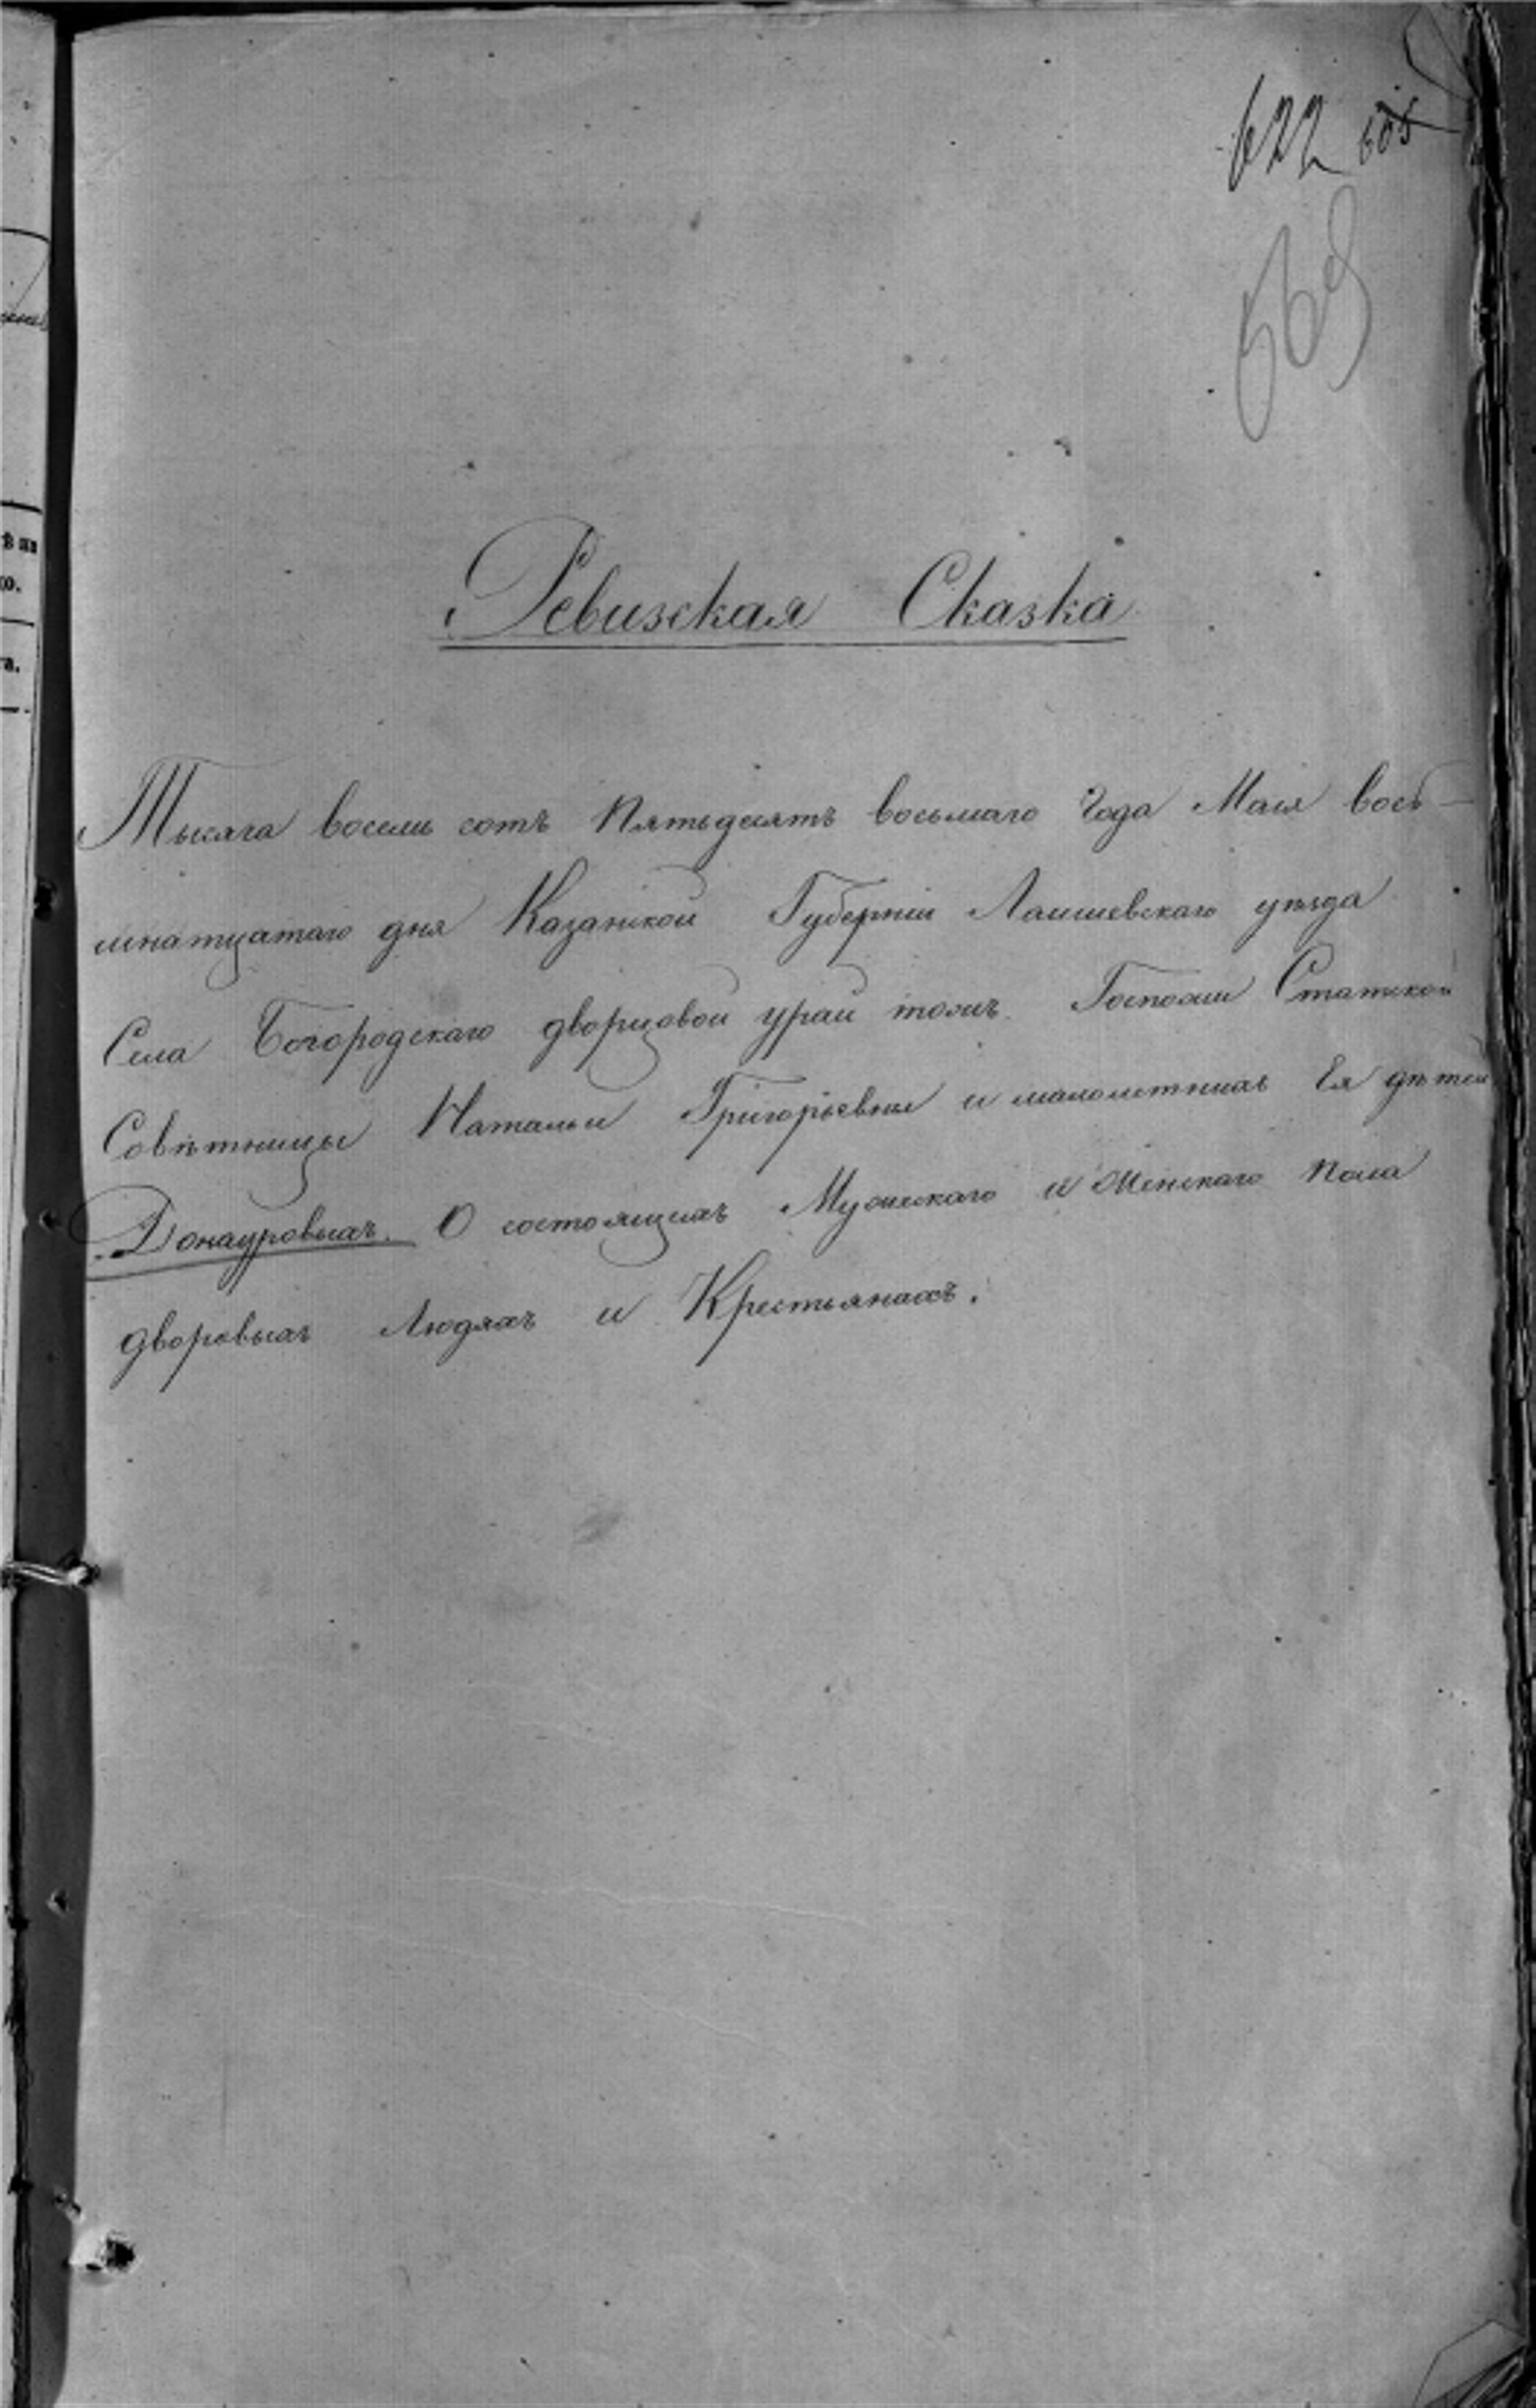 622 605
569
Ревизская Сказка
Тысяча восемь сотъ Пятьдесятъ восьмаго Года Маія вось-
мнатцатаго дня Казанской Губерніи Лаишевскаго уѣзда
Села Богородскаго дворцовой урай тожъ. Госпожи Статской
Совѣтницы Натальи Григорьевны и малолетныхъ Ея дѣтей
Донауровыхъ. О состоящихъ Мужескаго и Женскаго Пола
дворовыхъ Людяхъ и Крестьянахъ.